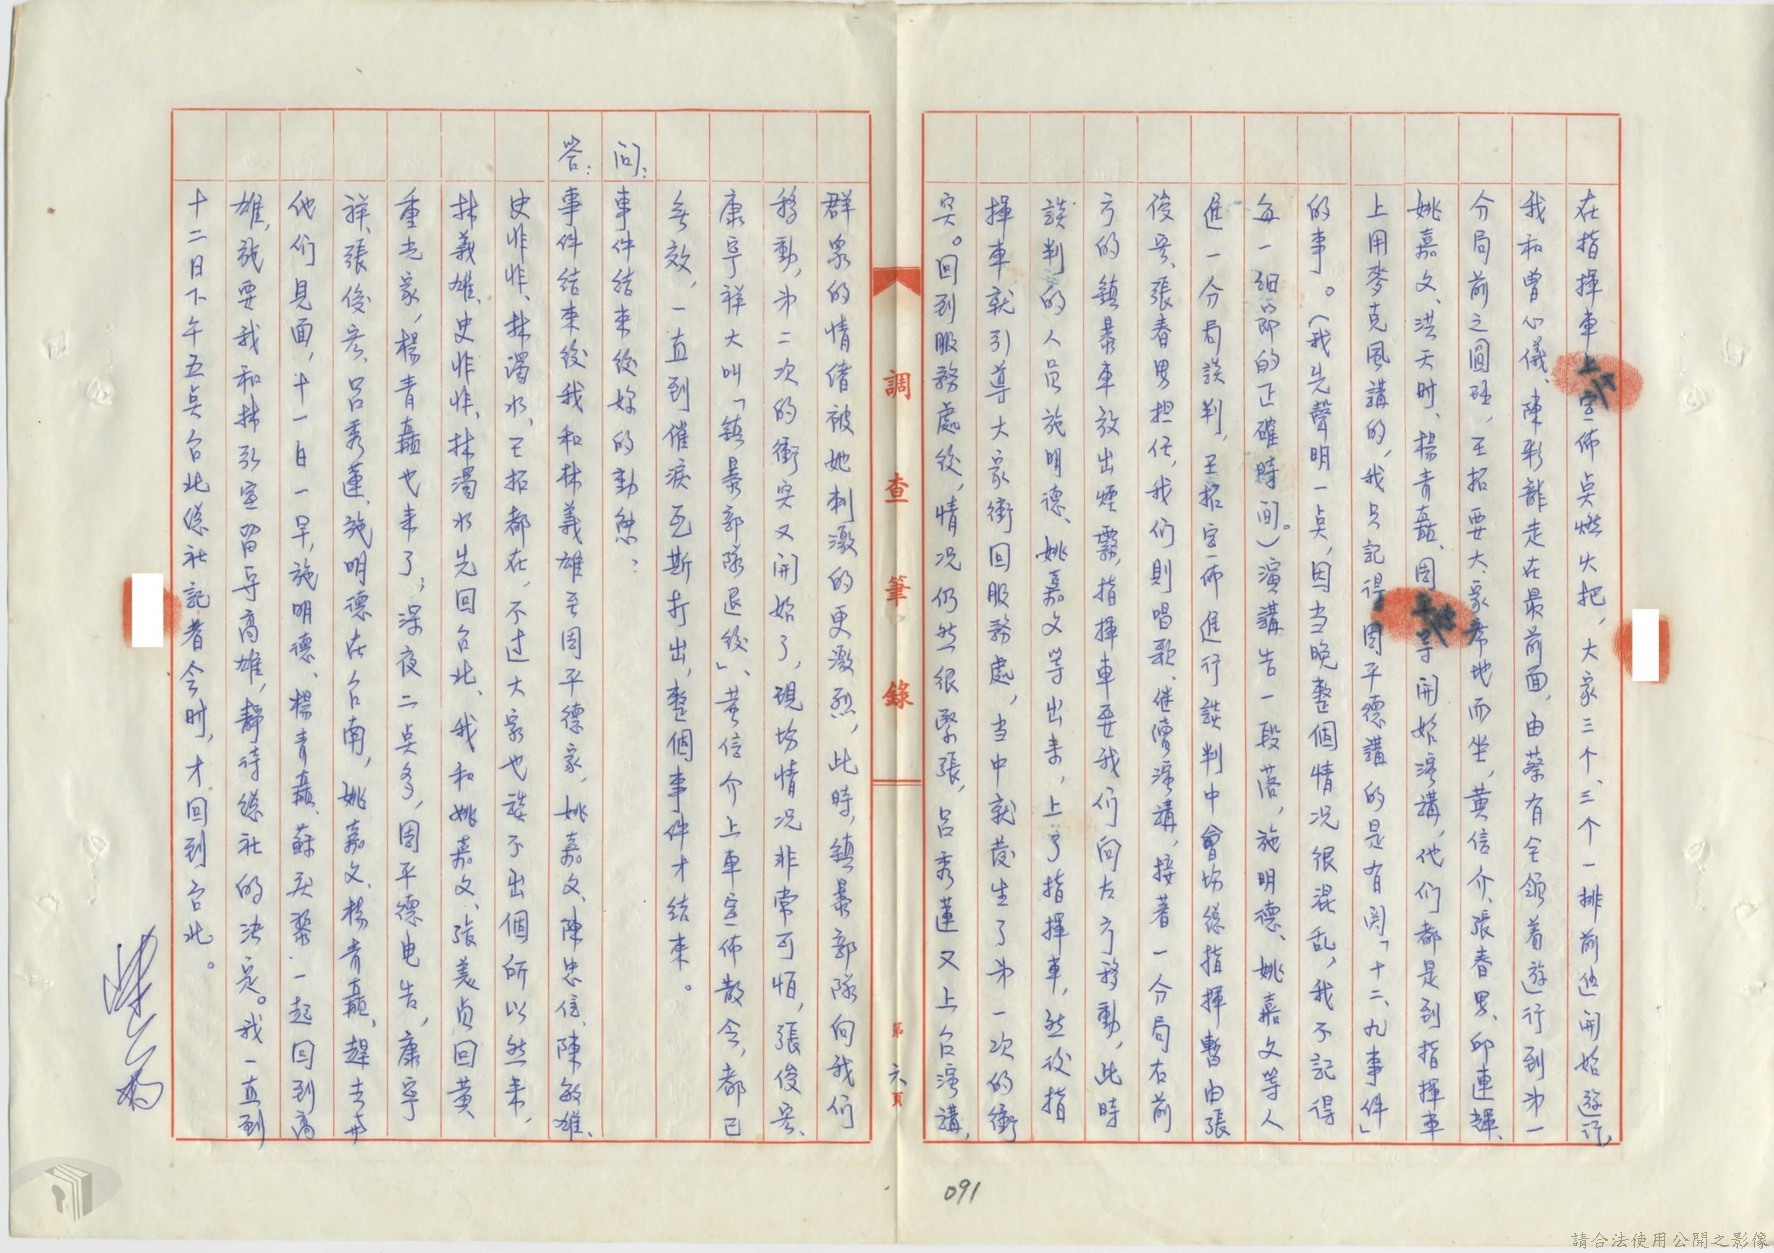 在指揮車上宣佈点燃火把，大家三个、三个一排前進開始遊行，
我和曾心儀、陳彩龍走在最前面，由蔡有全領着遊行到第一
分局前之圓环，王拓要大家席地而坐，黄信介、張春男、邱連輝、
姚嘉文、洪天时、楊青矗、周平德等開始演講，他們都是到指揮車
上用麥克風講的，我只記得周平德講的是有関「十二、九事件」
的事。（我先聲明一点，因当晚整個情況很混乱，我不記得
每一細節的正確時间。）演講告一段落，施明德、姚嘉文等人
進一分局談判，王拓宣佈進行談判中會場總指揮暫由張
俊宏、張春男担任，我們則唱歌、继續演講，接著一分局右前
方的鎮暴車放出煙霧，指揮車要我們向左方移動，此時
談判的人員施明德、姚嘉文等出来，上了指揮車，然後指
揮車就引導大家衝回服務處，当中就发生了第一次的衝
突。回到服務處後，情况仍然很緊張，呂秀蓮又上台演講，
調查筆錄
第六頁
群眾的情緒被她刺激的更激烈，此時，鎮暴部隊向我們
移動，第二次的衝突又開始了，現場情况非常可怕，張俊宏、
康寧祥大叫「鎮暴部隊退後」、黃信介上車宣佈散会，都已
無效，一直到催淚瓦斯打出，整個事件才結束。
问：事件結束後妳的動態？
答：事件結束後我和林義雄至周平德家，姚嘉文、陳忠信、陳敏雄、
史非非、林濁水、王拓都在，不过大家也談不出個所以然来，
林義雄、史非非、林濁水先回台北、我和姚嘉文、張美貞回黄
重光家，楊青矗也来了；深夜二点多，周平德电告，康寧
祥、張俊宏、呂秀蓮、施明德在台南，姚嘉文、楊青矗，趕去與
他們見面，十一日一早，施明德、楊青矗、蘇秋鎮一起回到高
雄，說要我和林弘宣留守高雄，靜待總社的决定。我一直到
十二日下午五点台北總社記者会时，才回到台北。
091
請合法使用公開之影像